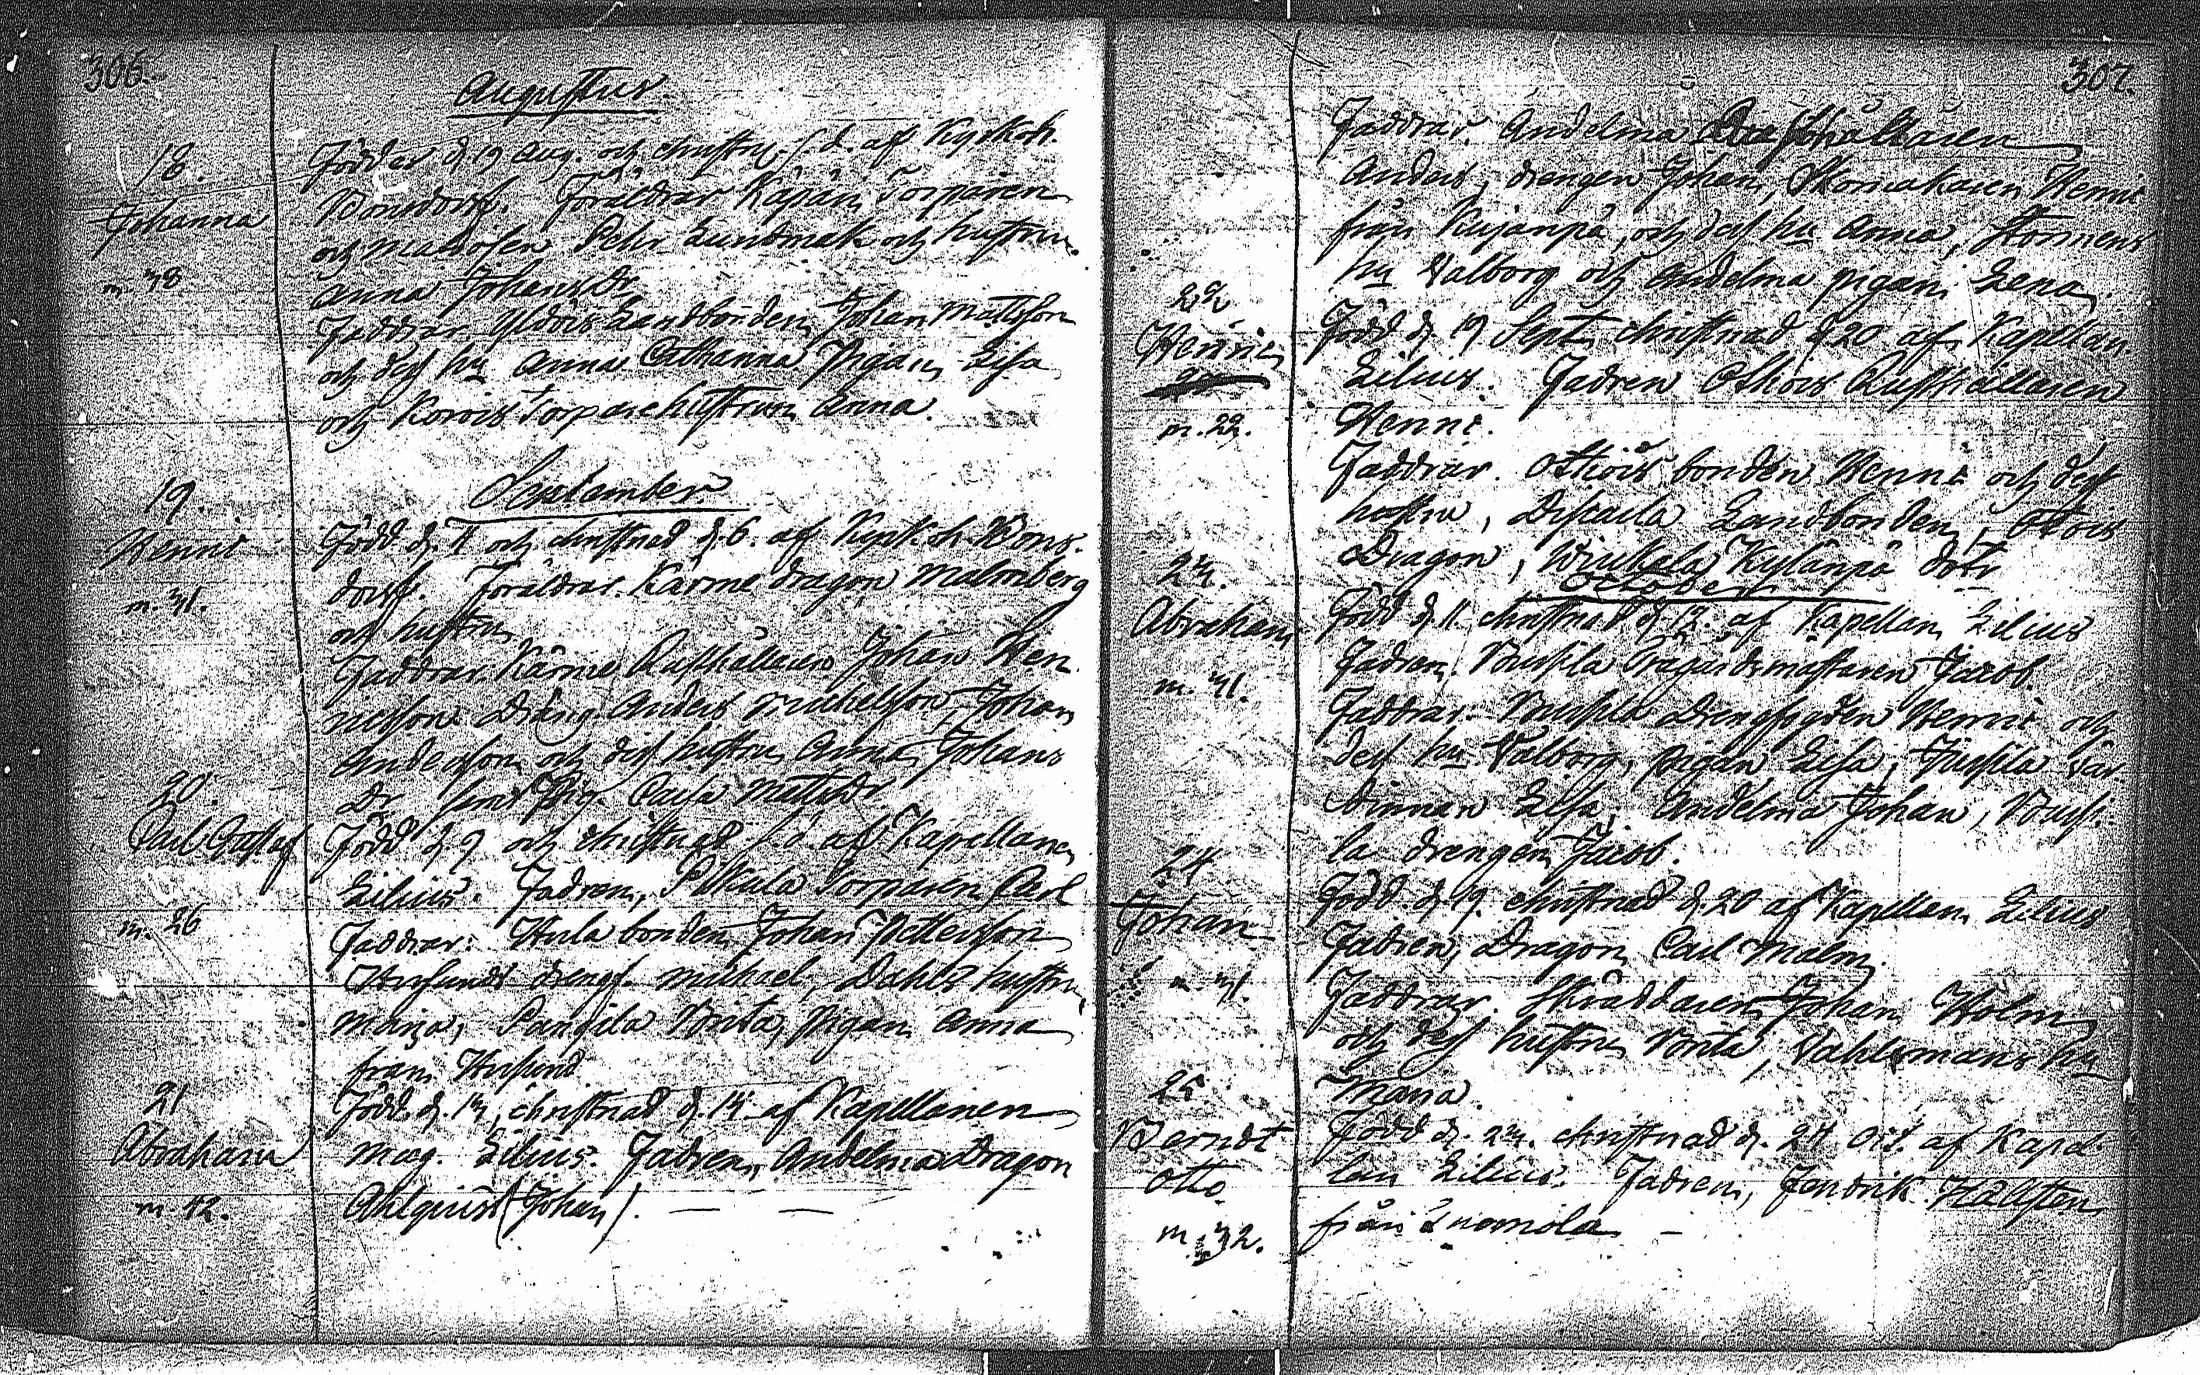 306.
Augustus
18.
Johanna
m. 38
Född d. 19 Aug. och christn. s. d. af Kyrkoh.
Bonsdorff. Föräldrar Käpän Torparen
och Matrosen Pehr Lundmak och hustrun
Anna JohansDr
Faddrar Landbonden Johan Mattsson
och dess hu Anna Catharina Pigan Lisa
och Torpare hustrun Anna.
September
19.
Henric
m. 31.
Född d. och christnad d. 6. af Kyrkoh. Bons-
dorff. Föräldrar. Kärme dragon Malmberg
och hustru
Faddrar. Kärme Rusthållaren Johan Hen
ricsson Dräng Anders Michelsson, Johan
Andersson och dess hustru Anna Johans
Dr samt Pig. Carla MattsDr
20.
Carl Gustaf
m. 26
Född d. 9 och christnad s. d. af Kapellanen
Lilius. Fadren, Pitkälä Torparen Carl
Faddrar: bonden Johan Pettersson
drengs. Michael, Dahls hustru
Maria, Brita, Pigan Anna
från
21
Abraham
m. 42.
Född d. 13, christnad d. 14 af Kapellanen
Mag. Lilius. Fadren, Andelma Dragon
Ahlqvist (Johan).
307.
Faddrar. Andelma Rusthållaren
Anders, drengen Johan, Skomakaren Henric
från Kujanpä, och dess hu Anna,
hu Valborg och Andelma pigan Lena
22
Henric
m. 22.
Född d. 19 Sept. christnad d. 20 af Kapellan
Lilius. Fadren Ottois Rusthållaren
Henric.
Faddrar. Ottois bonden Henric och dess
hustru, Landbonden, Ottois
Dragon, Kylänpä dotr
October
23.
Abraham
m. 31.
Född d. 11. christnad d. 12. af Kapellan Lilius
Fadren. Trägårdsmästaren Jacob.
Faddrar. Drengsgoden Henric och
dess hu Valborg, pigan Lisa, Vär-
dinnan Lisa, Andelma Johan,
la drengen Jacob.
24
Johan
m. 31.
Född d. 19. christnad d. 20 af Kapellan Lilius
Fadren, Dragon Carl Malm.
Faddrar. Skräddaren Johan Holm
och dess hustru Brita, Vahlsmans hu
Maria.
25.
Berndt
Otto
m. 32.
Född d. 23. christnad d. 24 Oct. af Kapel-
lan Lilius. Fadren, Fendrik Hällsten
från